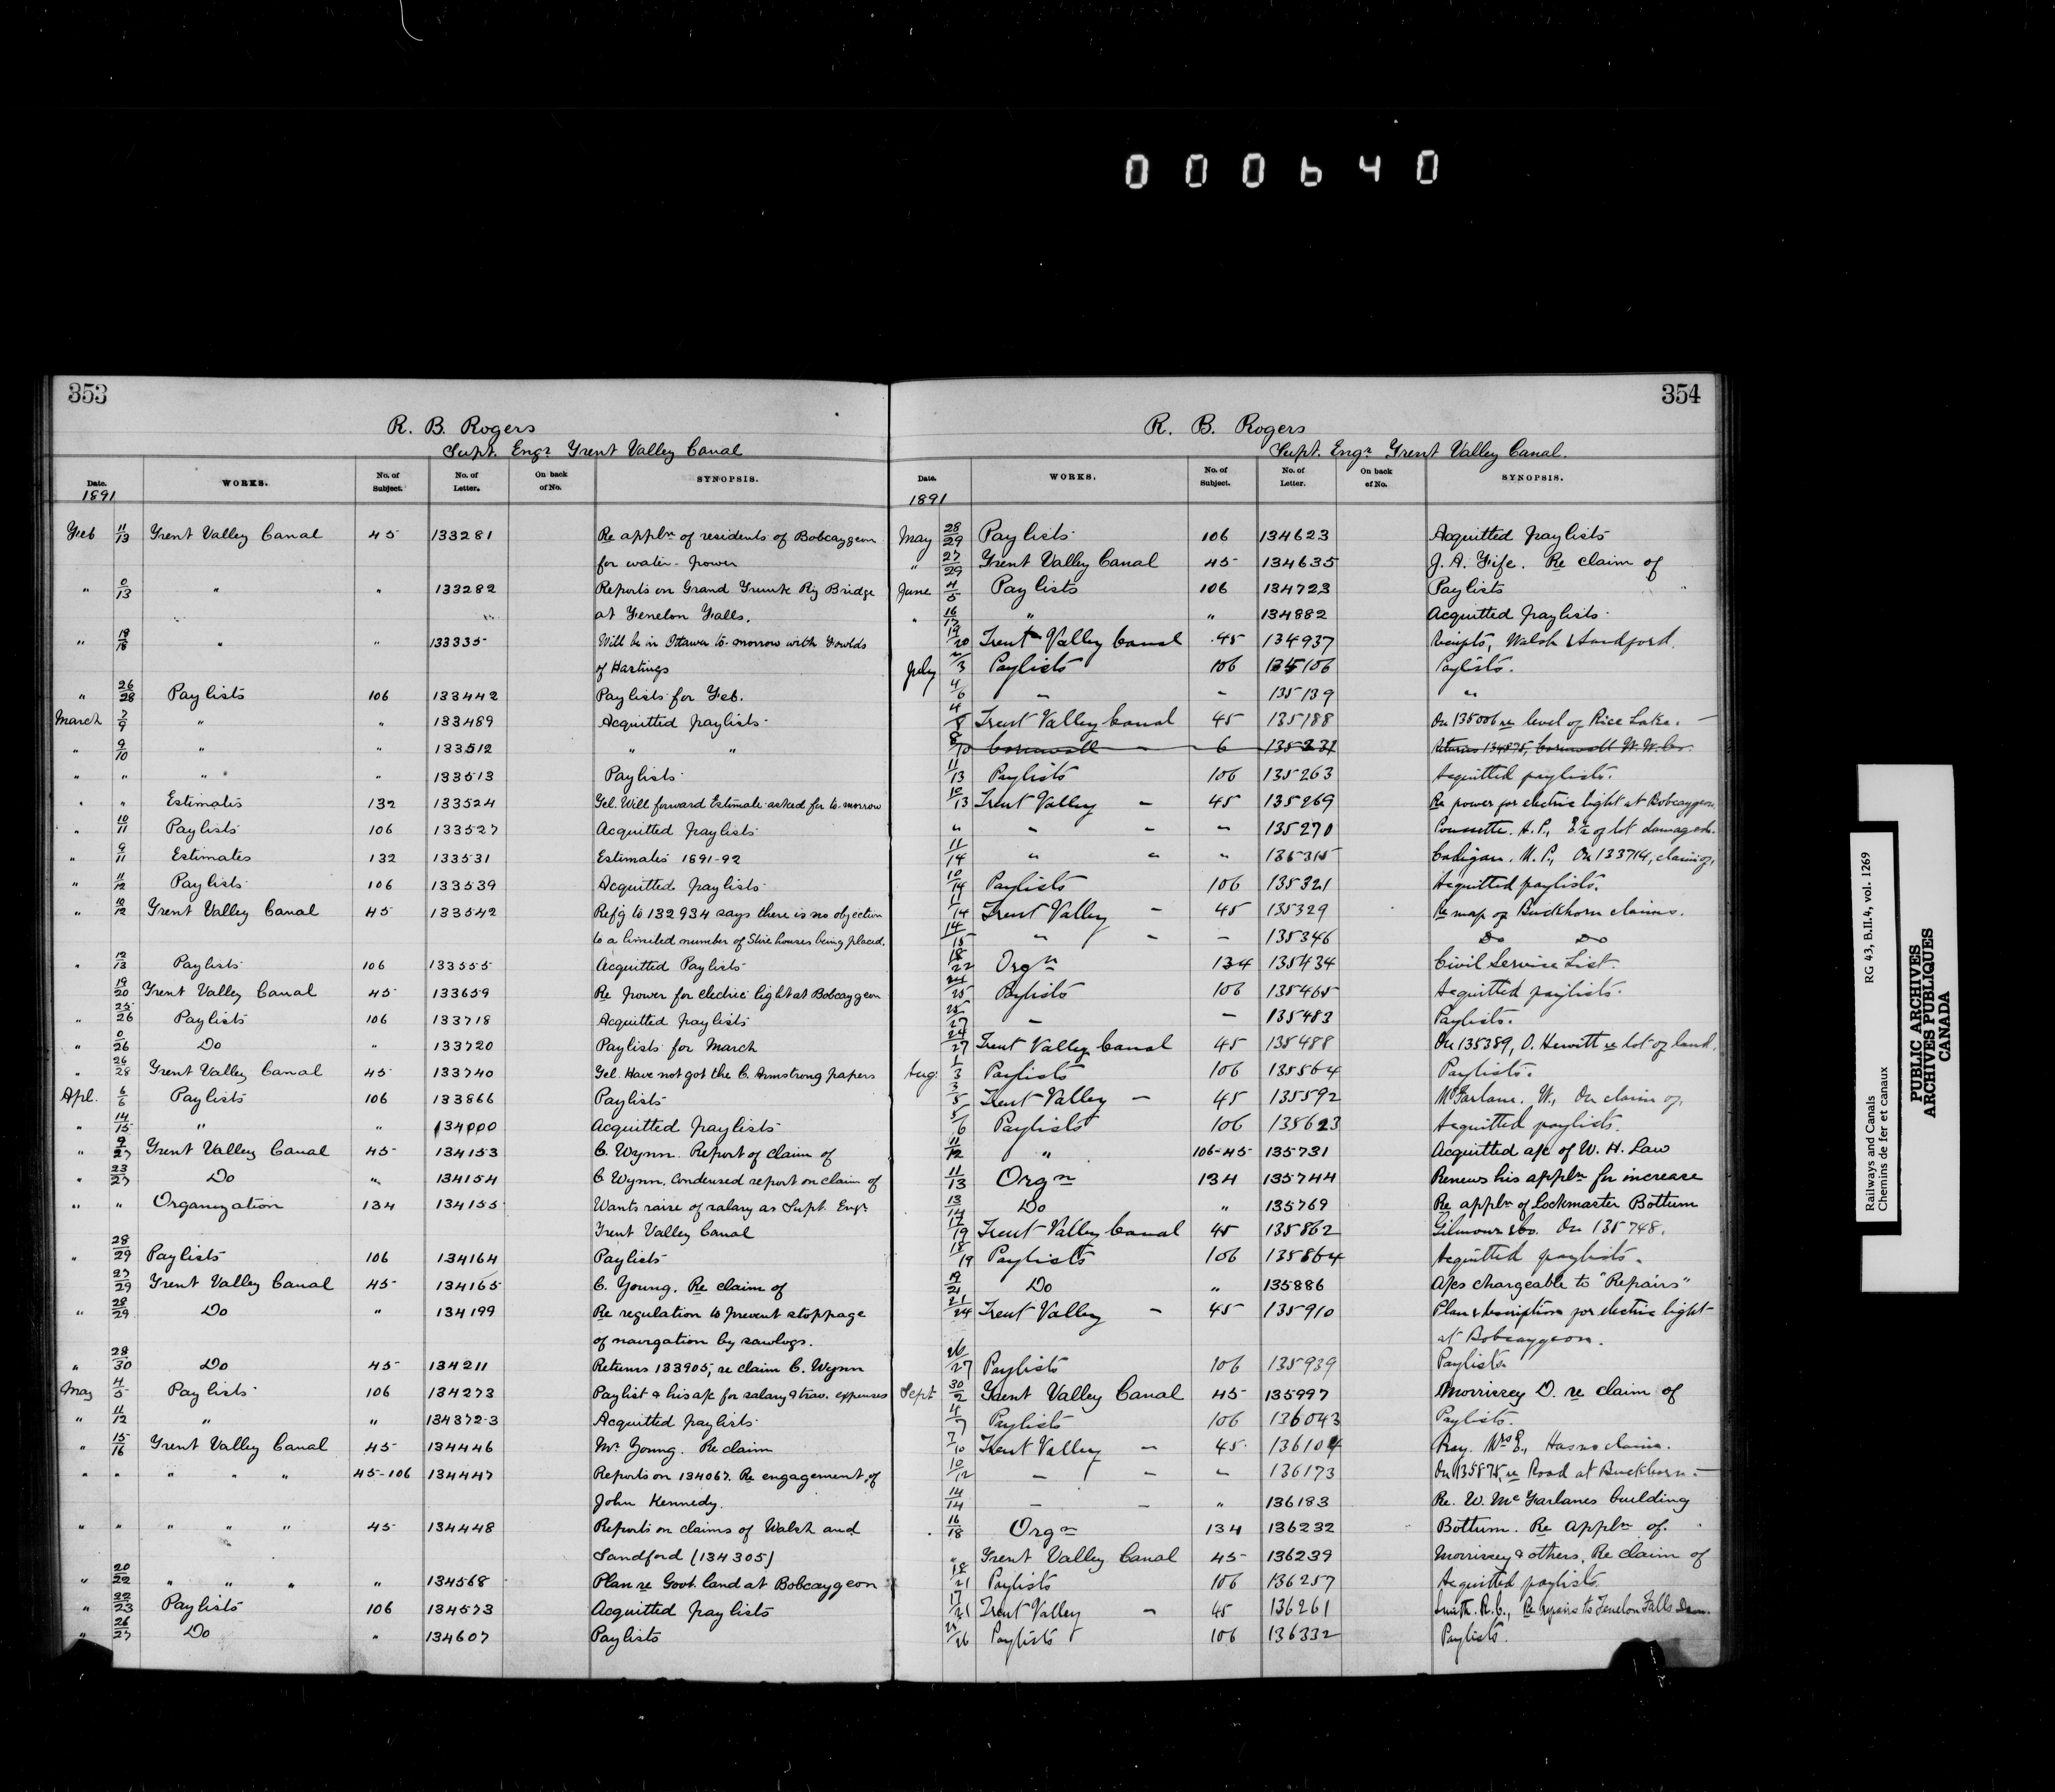 000640
353
R. B. Rogers
Supt. Engr Trent Valley Canal
Date. WORKS. No. of Subject. No. of Letter. On back of No. SYNOPSIS.
1891
Feb 11/13 Trent Valley Canal 45 133281 Re appln of residents of Bobcaygeon
for water-power
" 0/13 " " 133282 Reports on Grand Trunk Ry Bridge
at Fenelon Falls.
" 18/18 " " 133335 Will be in Ottawa to-morrow with Fowlds
of Hastings
" 26/28 Paylists 106 133442 Paylists for Feb.
March 7/9 " " 133489 Acquitted paylists
" 9/10 " " 133512 " "
" " " " 133513 Paylists
" " Estimates 132 133524 Tel. Will forward Estimate asked for to-morrow
" 10/11 Paylists 106 133527 Acquitted paylists
" 9/11 Estimates 132 133531 Estimates 1891-92
" 11/12 Paylists 106 133539 Acquitted paylists
" 10/12 Trent Valley Canal 45 133542 Ref'g to 132934 says there is no objection
to a limited number of Slide houses being placed.
" 12/13 Paylists 106 133555 Acquitted Paylists
19/20 Trent Valley Canal 45 133659 Re power for electric light at Bobcaygeon
" 25/26 Paylists 106 133718 Acquitted paylists
" 0/26 Do " 133720 Paylists for March
" 26/28 Trent Valley Canal 45 133740 Tel. Have not got the C. Armstrong papers
Apl. 6/6 Paylists 106 133866 Paylists
" 14/15 " " 134000 Acquitted paylists
" 9/27 Trent Valley Canal 45 134153 C. Wynn. Report of claim of
" 23/27 Do " 134154 C Wynn. Condensed report on claim of
" " Organization 134 134155 Wants raise of salary as Supt. Engr
Trent Valley Canal
" 28/29 Paylists 106 134164 Paylists
27/29 Trent Valley Canal 45 134165 C. Young. Re claim of
" 28/29 Do " 134199 Re regulation to prevent stoppage
of navigation by sawlogs.
" 28/30 Do 45 134211 Returns 133905, re claim C. Wynn
May 4/5 Paylists 106 134273 Paylist & his a/c for salary & trav. expenses
" 11/12 " " 134372-3 Acquitted paylists
" 15/16 Trent Valley Canal 45 134446 Mr Young. Re claim
" " " " " 45-106 134447 Reports on 134067. Re engagement of
John Kennedy.
" " " " " 45 134448 Reports on claims of Walsh and
Sandford (134305)
" 20/22 " " " " 134568 Plan re Govt. land at Bobcaygeon
" 22/23 Paylists 106 134573 Acquitted paylists
" 26/27 Do " 134607 Paylists
354
R. B. Rogers
Supt. Engr Trent Valley Canal.
Date. WORKS. No. of Subject. No. of Letter. On back of No. SYNOPSIS.
1891
May 28/29 Paylists 106 134623 Acquitted paylists
" 27/29 Trent Valley Canal 45 134635 J. A. Fife. Re claim of
June 4/5 Paylists 106 134723 Paylists
" 16/17 " " 134882 Acquitted paylists
19/20 Trent Valley Canal 45 134937 Receipts, Walsh & Sandford.
July 2/3 Paylists 106 135106 Paylists.
4/6 " " 135139 "
4/8 Trent Valley Canal 45 135188 On 135006 re level of Rice Lake.
8/10 Cornwall " 6 135231 Returns 134875, Cornwall W. W. Co.
11/13 Paylists 106 135263 Acquitted paylists.
10/13 Trent Valley " 45 135269 Re power for electric light at Bobcaygeon
" " " " 135270 Poussette. A. P., of lot damaged.
11/14 " " " 135315 Cadigan. M. P., On 133714, claim of,
10/14 Paylists 106 135321 Acquitted paylists.
11/14 Trent Valley " 45 135329 Re map of Buckhorn claims.
14/15 " " " 135346 Do Do
18/22 Orgn 134 135434 Civil Service List.
24/25 Paylists 106 135465 Acquitted paylists.
25/27 " " 135483 Paylists.
24/27 Trent Valley Canal 45 135488 On 135389, O. Hewitt re lot of land.
Aug. 1/3 Paylists 106 135564 Paylists.
3/5 Trent Valley " 45 135592 McFarlane. W., On claim of,
5/6 Paylists 106 135623 Acquitted paylists.
11/12 " 106-45 135731 Acquitted a/c of W. H. Law
11/13 Orgn 134 135744 Renews his appln for increase
13/14 Do " 135769 Re appln of Lockmaster Bottum
17/19 Trent Valley Canal 45 135862 Gilmour & Co. On 135748.
18/19 Paylists 106 135864 Acquitted paylists.
19/21 Do " 135886 A/cs chargeable to "Repairs"
21/24 Trent Valley " 45 135910 Plan & description for electric light
at Bobcaygeon.
26/27 Paylists 106 135939 Paylists
Sept 30/2 Trent Valley Canal 45 135997 Morrissey D. re claim of
4/7 Paylists 106 136043 Paylists.
7/10 Trent Valley " 45 136104 Ray. Mrs E., Has no claim.
10/12 " " " 136173 On 135875, re Road at Buckhorn.
14/14 " " " 136183 Re. W. McFarlanes building
16/18 Orgn 134 136232 Bottum. Re appln of.
" Trent Valley Canal 45 136239 Morrissey & others. Re claim of
18/21 Paylists 106 136257 Acquitted paylists.
17/21 Trent Valley " 45 136261 Smith. R. C., Re repairs to Fenelon Falls Dam.
25/26 Paylists 106 136332 Paylists.
Railways and Canals RG 43, B.II.4, vol. 1269
Chemins de fer et canaux
PUBLIC ARCHIVES
ARCHIVES PUBLIQUES
CANADA